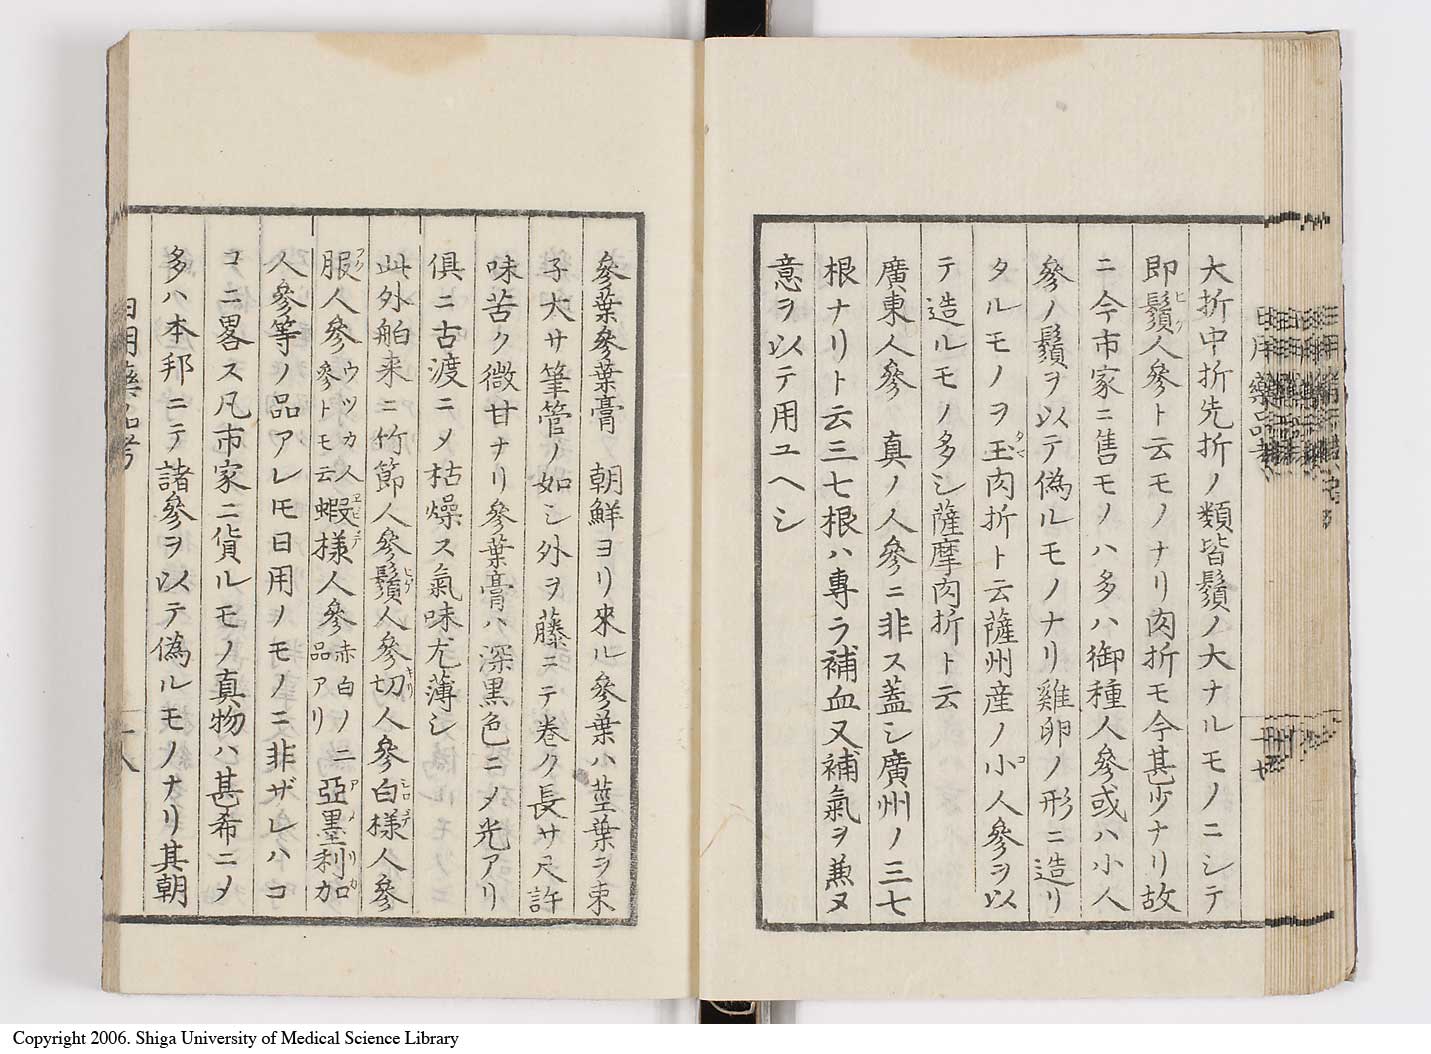 大折中折先折ノ類皆鬚ノ大ナルモノニシテ
即鬚人參ト云モノナリ肉折モ今甚少ナリ故
ニ今市家ニ售モノハ多ハ御種人參或ハ小人
參ノ鬚ヲ以テ偽ルモノナリ雞卵ノ形ニ造リ
タルモノヲ玉肉折ト云薩州産ノ小人參ヲ以
テ造ルモノ多シ薩摩肉折ト云
廣東人參 真ノ人參ニ非ス蓋シ廣州ノ三七
根ナリト云三七根ハ專ラ補血又補氣ヲ兼ヌ
意ヲ以テ用ユヘシ
參葉參葉膏 朝鮮ヨリ來ル參葉ハ莖葉ヲ束
子大サ筆管ノ如シ外ヲ藤ニテ卷ク長サ尺許
味苦ク微甘ナリ參葉膏ハ深黒色ニメ光アリ
俱ニ古渡ニメ枯燥ス氣味尤薄シ
此外舶来ニ竹節人參鬚人參切人參白様人參
服人參ウツカ人參トモ云蝦様人參赤白ノ二品アリ亞墨利加
人參等ノ品アレモ日用ノモノニ非ザレハコ
コニ畧ス凡市家ニ貨ルモノ真物ハ甚希ニメ
多ハ本邦ニテ諸參ヲ以テ偽ルモノナリ其朝
日用藥品考
十八